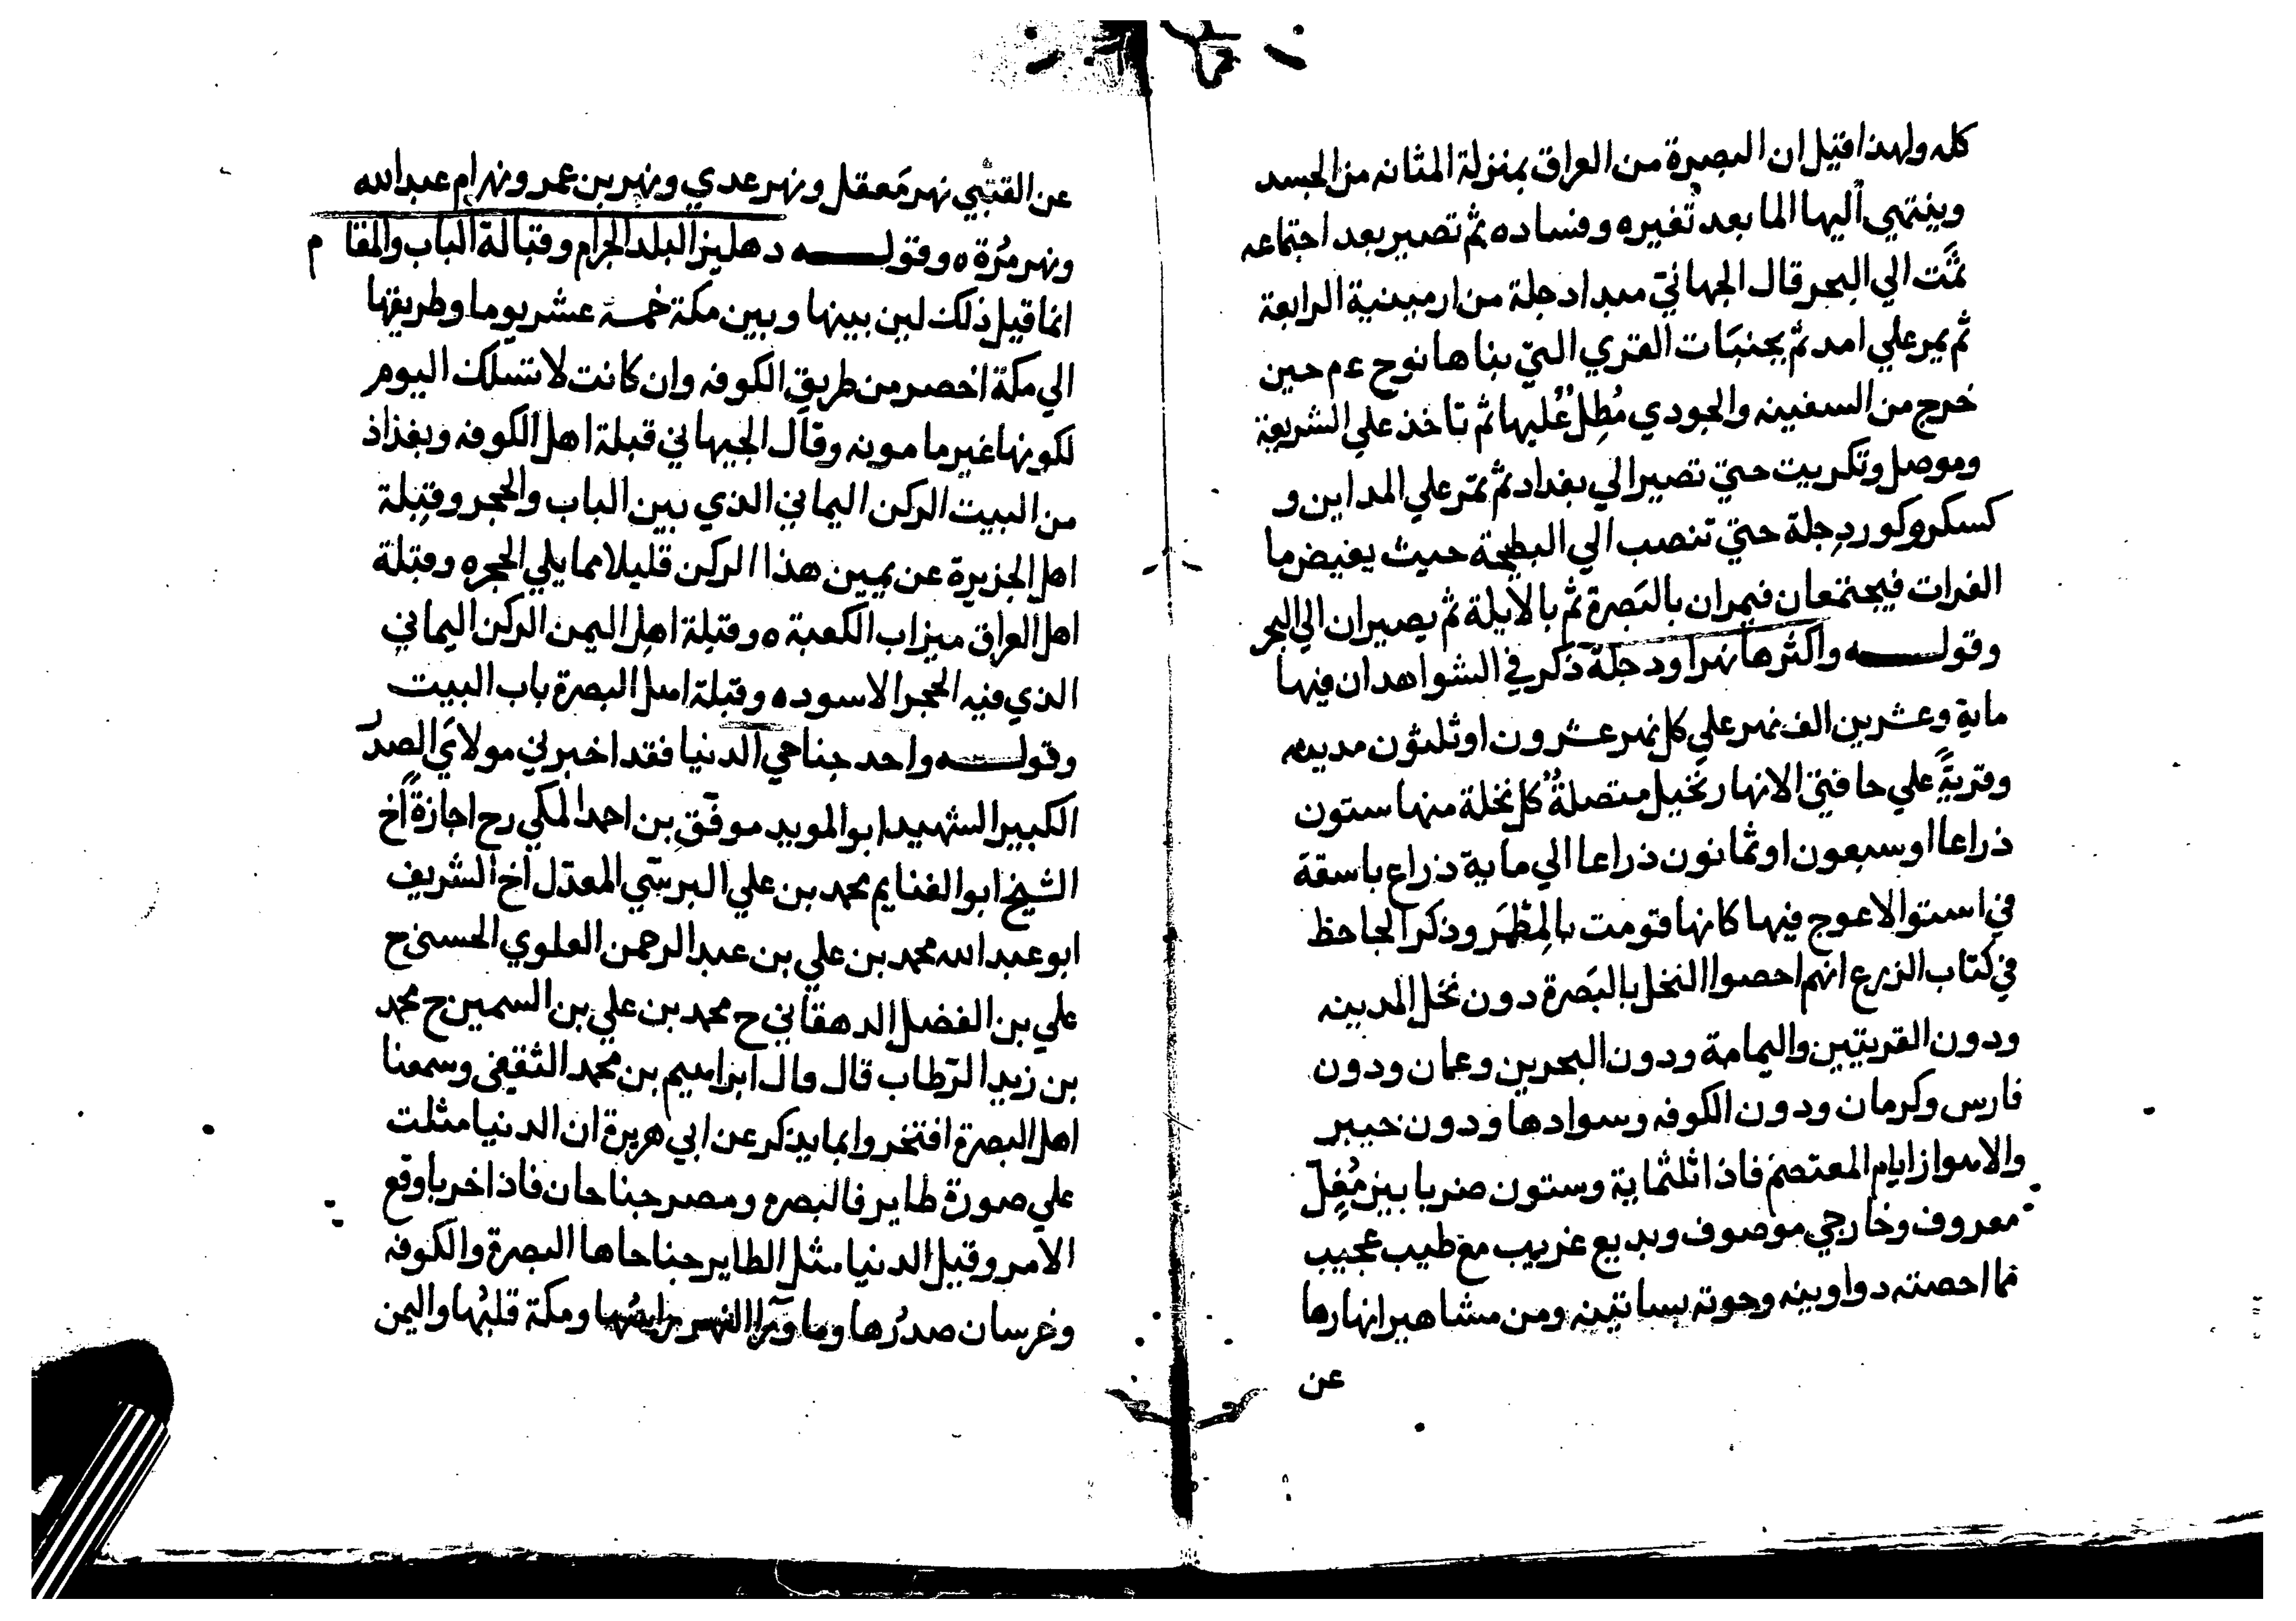 كله ولهذا قيل ان البصرة من العراق بمنزلة المثانه من الجسد
وينتهي اليها الما بعد تغيره وفساده ثم تصير بعد اجتماعه
ثمَّت الي البحر قال الجهاني مبدا دجلة من ارمينية الرابعة
ثم يمر علي امد ثم بجنبَات القري التي بناها نوح ءم حين
خرج من السفينه والجودي مُطِلٌ عُليها ثم تاخذ علي الشريعة
وموصل وتكريت حتي تصير الي بغداد ثم تمر علي المداين و
كسكر وكور دِجلة حتي تنصب الي البطيحة حيث يغيض ما
الفرات فيجتمعان فيمران بالبَصرة ثم بالابلة ثم يصيران الي البحر
وقولـــه واكثرها نهرا ودجلة ذكر في الشواهد ان فيها
ماية وعشرين الف نهر علي كل نهر عشرون او ثلثون مدينه
وقريةً علي حافتي الانهار نخيل متصلةٌ كل نخلة منها ستون
ذراعا او سبعون او ثمانون ذراعا الي ماية ذراع باسقة
في استوا لا عوج فيها كانها قومت بالمِطْمَر وذكر الجاحظ
في كتاب الزرع انهم احصوا النخل بالبَصرة دون نخل المدينه
ودون القريتين واليمامة ودون البحرين وعمان ودون
فارس وكرمان ودون الكوفه وسوادها ودون خيبر
والاهواز ايام المعتصم فاذا ثلثماية وستون ضربا بين مُغِلّ
معروف وخارجي موصوف وبديع غريب مع طيب عجيب
فما احصته دواوينه وحوته بساتينه ومن مشاهير انهارها
عن
عن القتبي نهر مَعقل ونهر عدي ونهر بن عمر ونهر ام عبد الله
ونهر مُرة ه وقولـــه دهليز البلد الحرام وقبالة الباب والمقام
انما قيل ذلك لين بينها وبين مكة خمسة عشر يوما وطريقها
الي مكة اخصر من طريق الكوفه وان كانت لا تسلك اليوم
لكونها غير مامونه وقال الجيهاني قبلة اهل الكوفه وبغداذ
من البيت الركن اليماني الذي بين الباب والحجر وقبلة
اهل الجزيرة عن يمين هذا الركن قليلا مما يلي الحجر ه وقبلة
اهل العراق ميزاب الكعبة ه وقبلة اهل اليمن الركن اليماني
الذي فيه الحجر الاسود ه وقبلة اهل البصرة باب البيت
وقولـــه واحد جناحي الدنيا فقد اخبرني مولايَ الصدر
الكبير الشهيد ابو المويد موفق بن احمد المكي رح اجازةً اخ
الشيخ ابو الغنايم محمد بن علي البرسي المعدّل اخ الشريف
ابو عبد الله محمد بن علي بن عبد الرحمن العلوي الحسني ح
علي بن الفضل الدهقاني ح محمد بن علي بن السمين ح محمد
بن زيد الرّطاب قال قال ابراهيم بن محمد الثقفي وسمعنا
اهل البصرة افتخروا بما يذكر عن ابي هريرة ان الدنيا مثلت
علي صورة طاير فالبصره ومصر جناحان فاذا خربا وقع
الامر وقيل الدنيا مثل الطاير جناحاها البصرة والكوفه
وخرسان صدرُها وما ورا النهر ومكة قلبُها واليمن